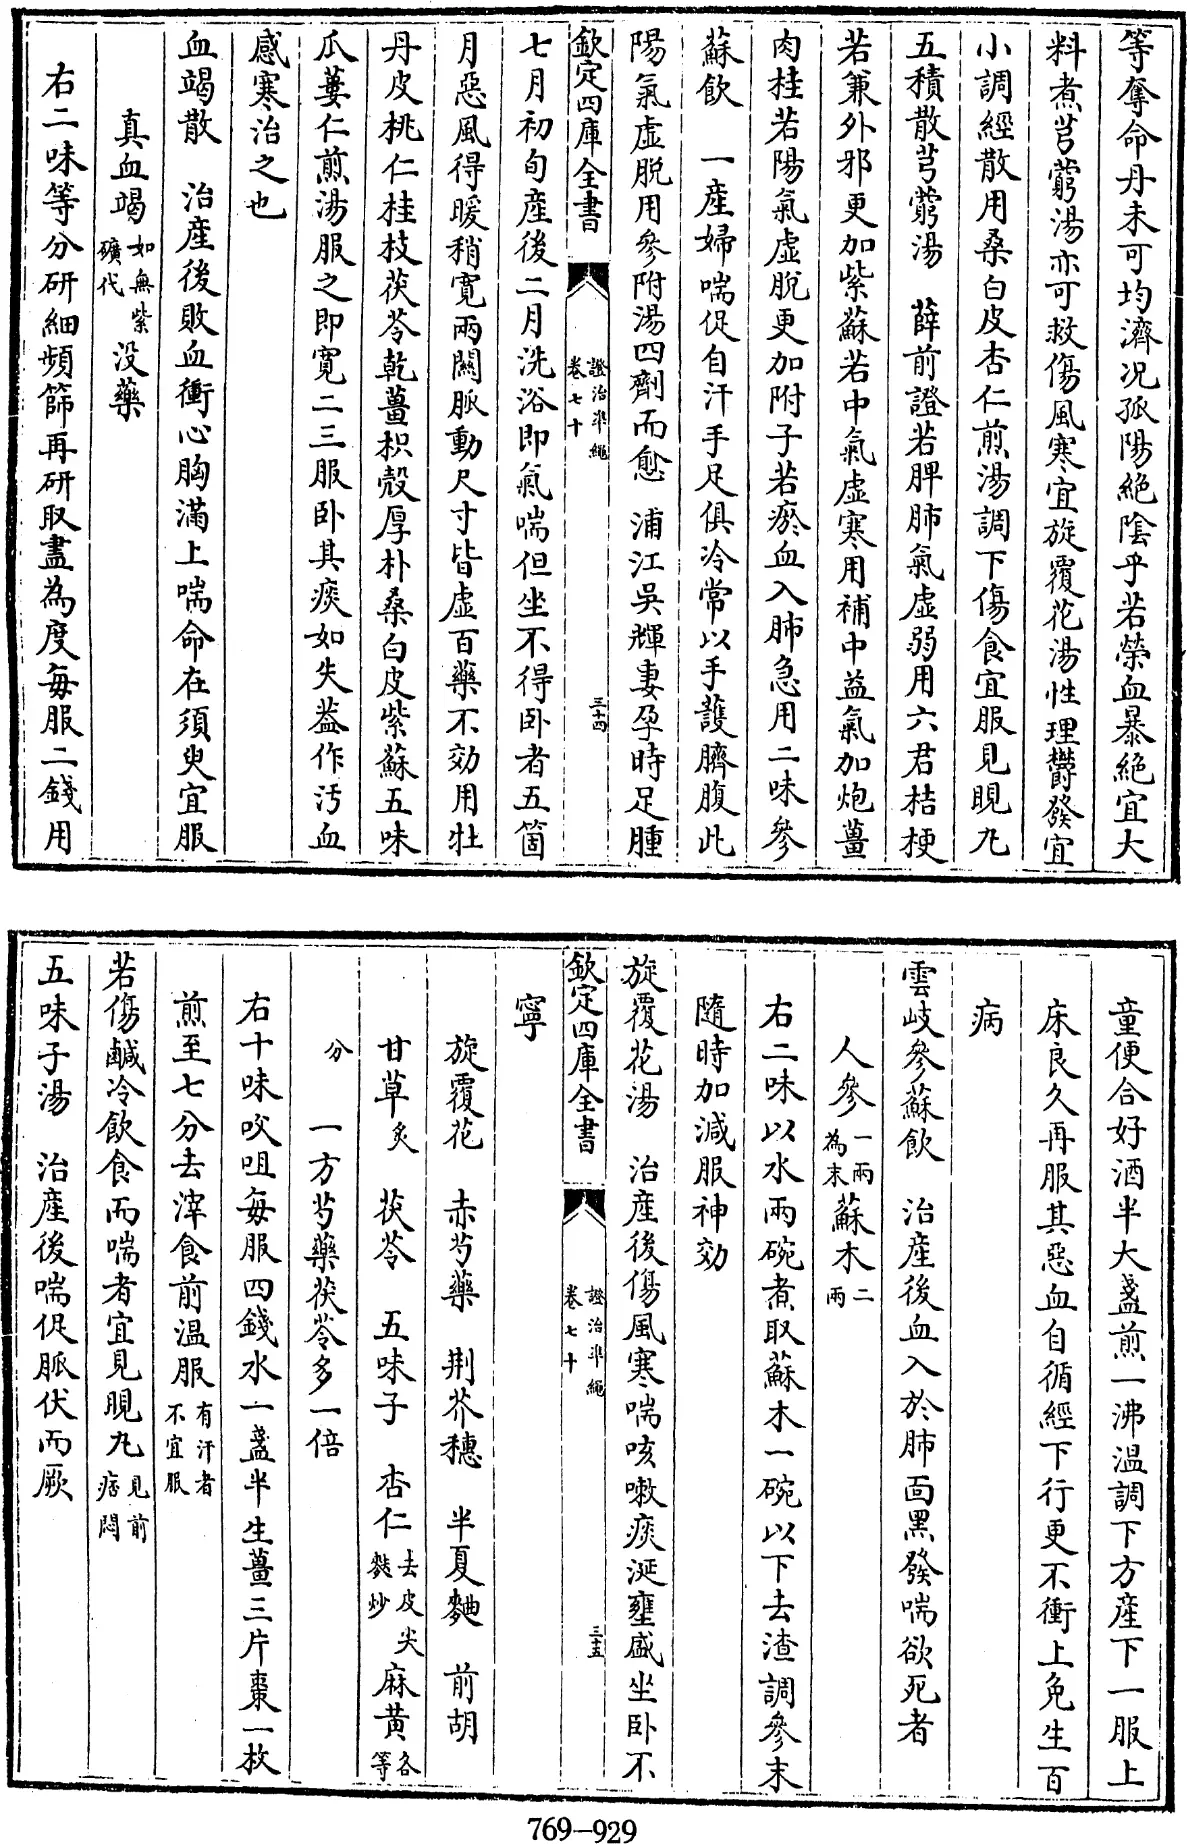 等奪命丹未可均濟况孤陽絶陰乎若榮血暴絶宜大
料煮芎藭湯亦可救傷風寒宜旋覆花湯性理鬱發宜
小調經散用桑白皮杏仁煎湯調下傷食宜服見睍丸
五積散芎藭湯　薛前證若脾肺氣虛弱用六君桔梗
若兼外邪更加紫蘇若中氣虛寒用補中益氣加炮薑
肉桂若陽氣虛脫更加附子若瘀血入肺急用二味參
蘇飲　一産婦喘促自汗手足俱冷常以手護臍腹此
陽氣虛脫用參附湯四劑而愈　浦江吳輝妻孕時足腫
欽定四庫全書　證治凖繩卷七十　三十四
七月初旬産後二月洗浴即氣喘但坐不得卧者五箇
月惡風得暖稍寛兩關脈動尺寸皆虛百藥不効用牡
丹皮桃仁桂枝茯苓乾薑枳殻厚朴桑白皮紫蘇五味
瓜蔞仁煎湯服之即寛二三服卧其痰如失葢作汚血
感寒治之也
血竭散　治産後敗血衝心胸滿上喘命在須臾宜服
真血竭如無紫礦代　没藥
右二味等分研細頻篩再研取盡為度每服二錢用
童便合好酒半大盞煎一沸温調下方産下一服上
床良久再服其惡血自循經下行更不衝上免生百
病
雲岐參蘇飲　治産後血入於肺面黑發喘欲死者
人參一兩為末　蘇木二兩
右二味以水兩碗煮取蘇木一碗以下去渣調參末
隨時加減服神効
旋覆花湯　治産後傷風寒喘咳嗽痰涎壅盛坐卧不
欽定四庫全書　證治凖繩卷七十　三十五
寧
旋覆花　赤芍藥　荆芥穗　半夏麯　前胡
甘草炙　茯苓　五味子　杏仁去皮尖麩炒　麻黄各等
分　一方芍藥茯苓多一倍
右十味㕮咀每服四錢水一盞半生薑三片棗一枚
煎至七分去滓食前温服有汗者不宜服
若傷鹹冷飲食而喘者宜見睍丸見前痞悶
五味子湯　治産後喘促脈伏而厥
769–929